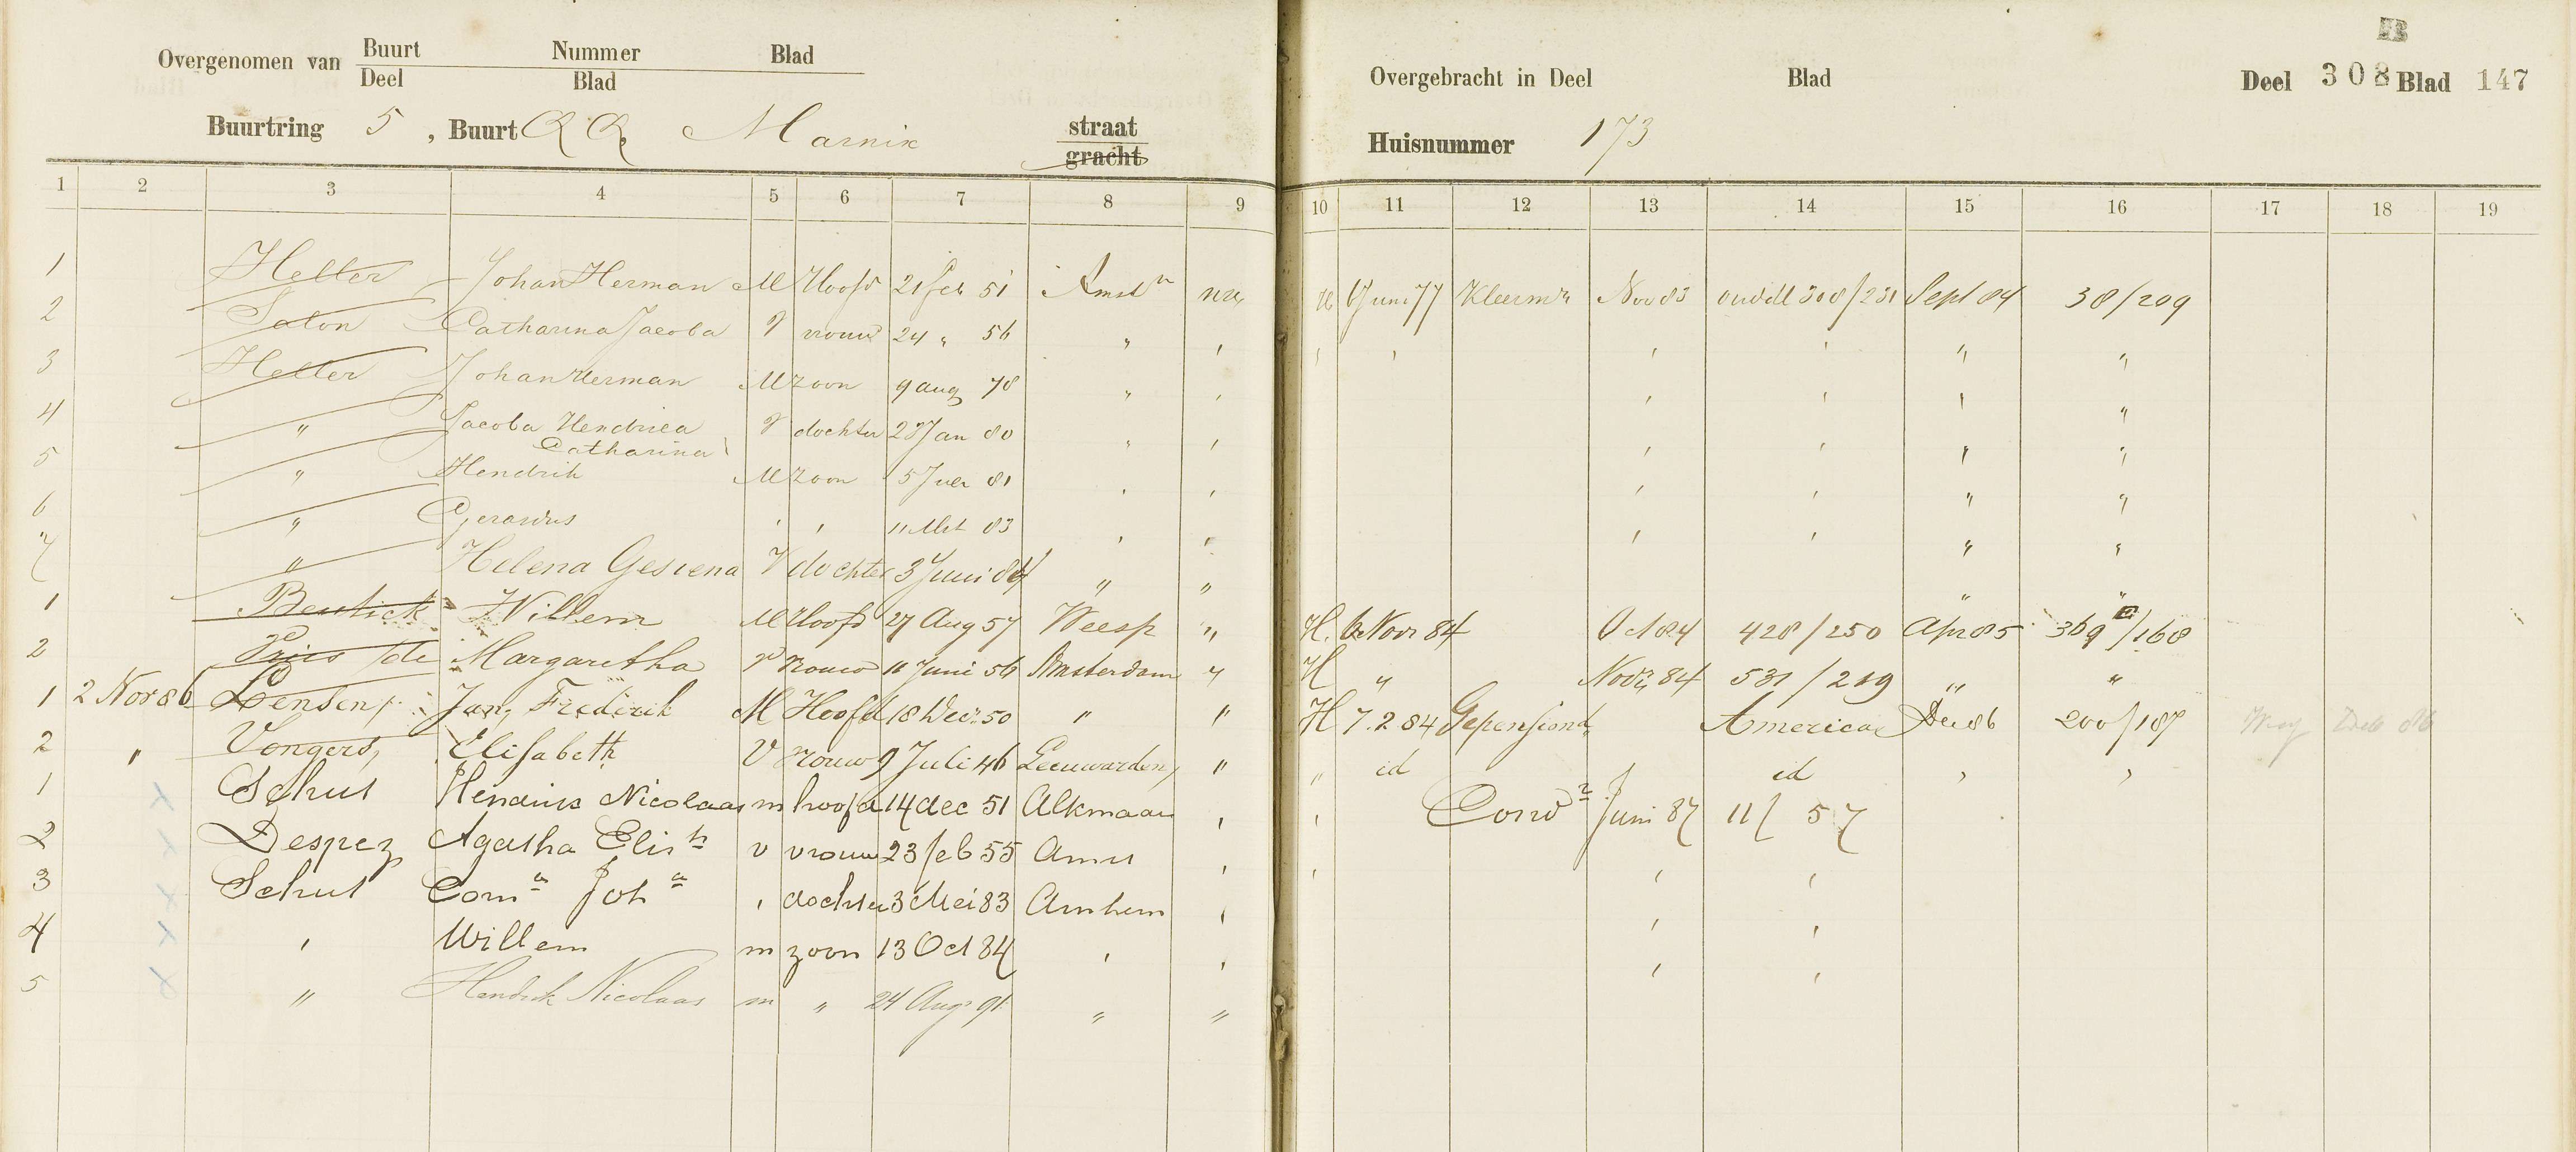 Overgenomen van Buurt Nummer Blad
Deel Blad
Overgebracht in Deel Blad
Deel 308 Blad 147
Buurtring 5, Buurt QQ Marnix straat
gracht
Huisnummer 173
1 2 3 4 5 6 7 8 9 10 11 12 13 14 15 16 17 18 19
1 Heller Johan Herman M Hoofd 21 feb 51 Amstm H 6 Juni 77 Kleermr Nov 83 308/231 Sept 84 38/209
2 Salon Catharina Jacoba V vrouw 24 " 56 " " "
3 Heller Johan Herman M zoon 9 aug 78 " "
4 " Jacoba Hendrica Catharina V dochter 28 Jan 80 " "
5 " Hendrik M zoon 5 81 " "
6 " Gerardus " " 11 Mrt 83 " "
7 " Helena Gesiena V dochter 3 Juni 84 " " " "
1 Willem M Hoofd 27 Aug 57 Weesp " H. 6 Nov 84 Oct 84 428/250 Apr 85 369/168
2 Margaretha V vrouw 11 Juni 56 Amsterdam " H " Nov 84 531/219 " "
1 2 Nov 86 Jan Frederik M Hoofd 18 Dec 50 " " H 7.2 84 Gepensiond America Dec 86 200/187 Dec 86
2 " Vongers, Elisabeth V vrouw 9 Juli 46 Leeuwarden " " id id " "
1 Schut Hendrik Nicolaas m hoofd 14 dec 51 Alkmaar " " Condr Juni 87 11/57
2 Despez Agatha Elish v vrouw 23 feb 55 Amst " " " "
3 Schut Corna Joha " dochter 3 Mei 83 Arnhem " " "
4 " Willem m zoon 13 Oct 84 " " " "
5 " Hendrik Nicolaas m " 24 Aug 91 " "